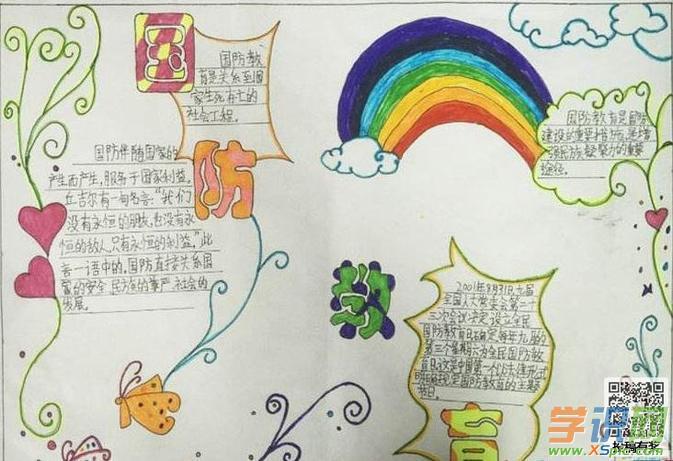 国
国防教
育是关系到国
家生死存亡的
社会工程。
防
国防伴随国家的
产生而产生，服务于国家利益。
丘吉尔有一句名言："我们
没有永恒的朋友，也没有永
恒的敌人，只有永恒的利益。"此
言一语中的，国防直接关系国
家的安全、民族的尊严、社会的
发展。
国防教育是国防
建设的重要
强民族凝聚力的重要
途径。
教
2001年8月31日,九届
全国人大常委会第二十
三次会议决定设立全民
国防教育日,确定每年九月的
第三个星期六为全民国防教
育日。这是中国第一个以法律形式
国防教育的主题
节日。
育
学识网
www.xspic.com
投稿有奖